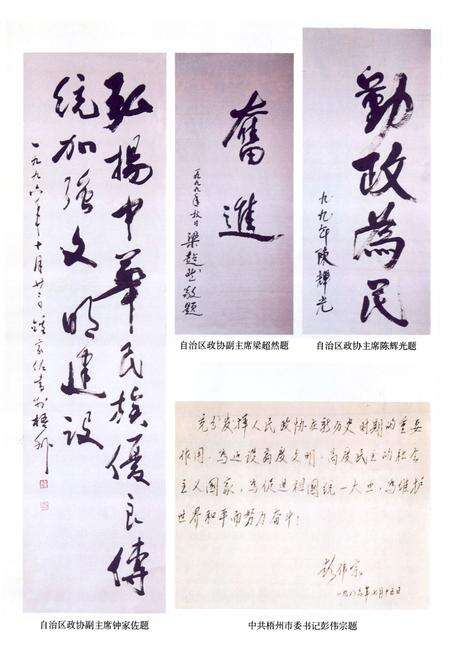 弘揚中華民族優良傳
统加强文明建设
一九九六年十月廿二日鍾家佐书于梧州
自治区政协副主席钟家佐题
奮進
一九九九年秋日梁超然敬题
自治区政协副主席梁超然题
勤政為民
九九年陳輝光
自治区政协主席陈辉光题
充分发挥人民政协在新历史时期的重要
作用，为建设高度文明、高度民主的社会
主义国家，为促进祖国统一大业，为维护
世界和平而努力奋斗！
彭伟宗
一九八六年七月十五日
中共梧州市委书记彭伟宗题